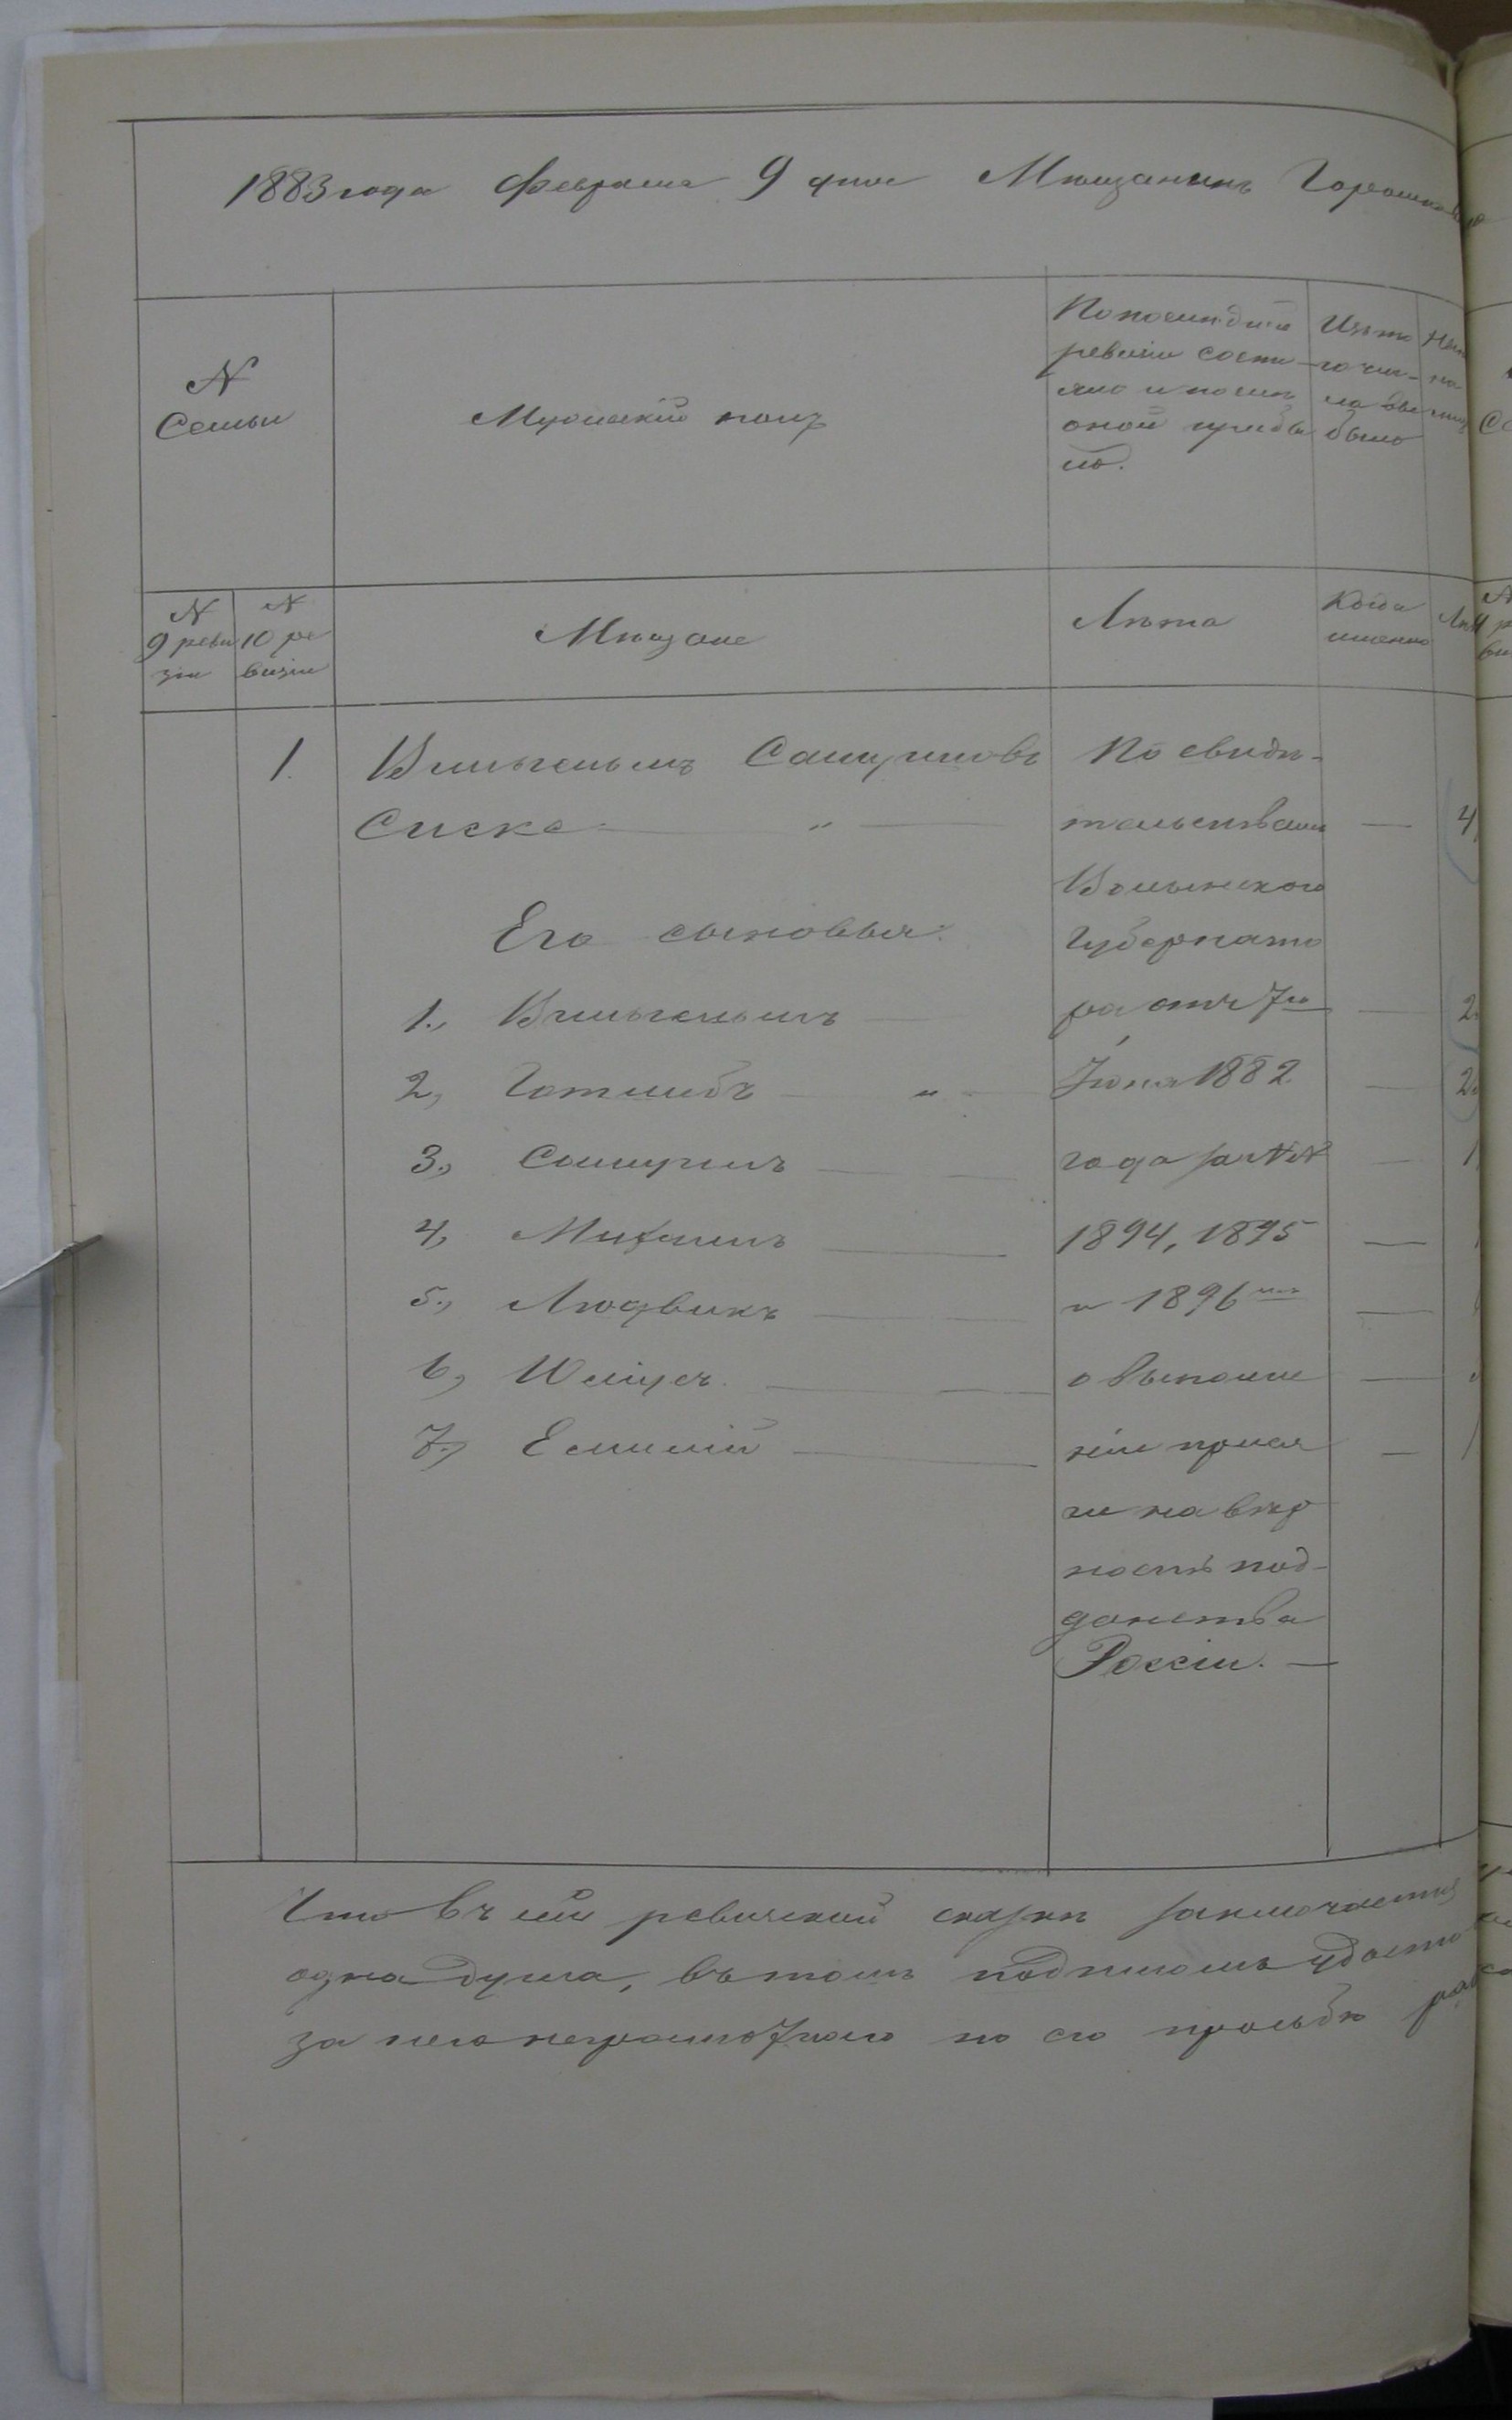 1883 года Февраля 9 дня Мѣщанинъ
N
Семьи
Мужескій полъ
По послѣдней
ревизіи состо
яло и послѣ
оной прибы
ло.
Изъ то
го чис-
ла вы
было
N
9 реви
зіи
N
10 ре
визіи
Мѣщане
Лѣта
Когда
именно
1. Вильгельмъ Самуиловъ
Сиске — " —
По свидѣ-
тельствамъ
Волынскаго
Губернато
ра отъ 7го
Іюня 1882
года за NN
1894, 1895
и 1896
о выполне
ніи прися
ги на вѣр
ность под-
данства
Россіи. —
Его сыновья:
1., Вильгельмъ —
2, Готлибъ — " —
3., Самуилъ —
4, Михаилъ —
5., Людвикъ —
6, Юліусъ. —
7., Емилій —
Что въ сей ревизской сказкѣ заключается
одна душа, въ томъ подписомъ
за него неграмотнаго по его просьбѣ